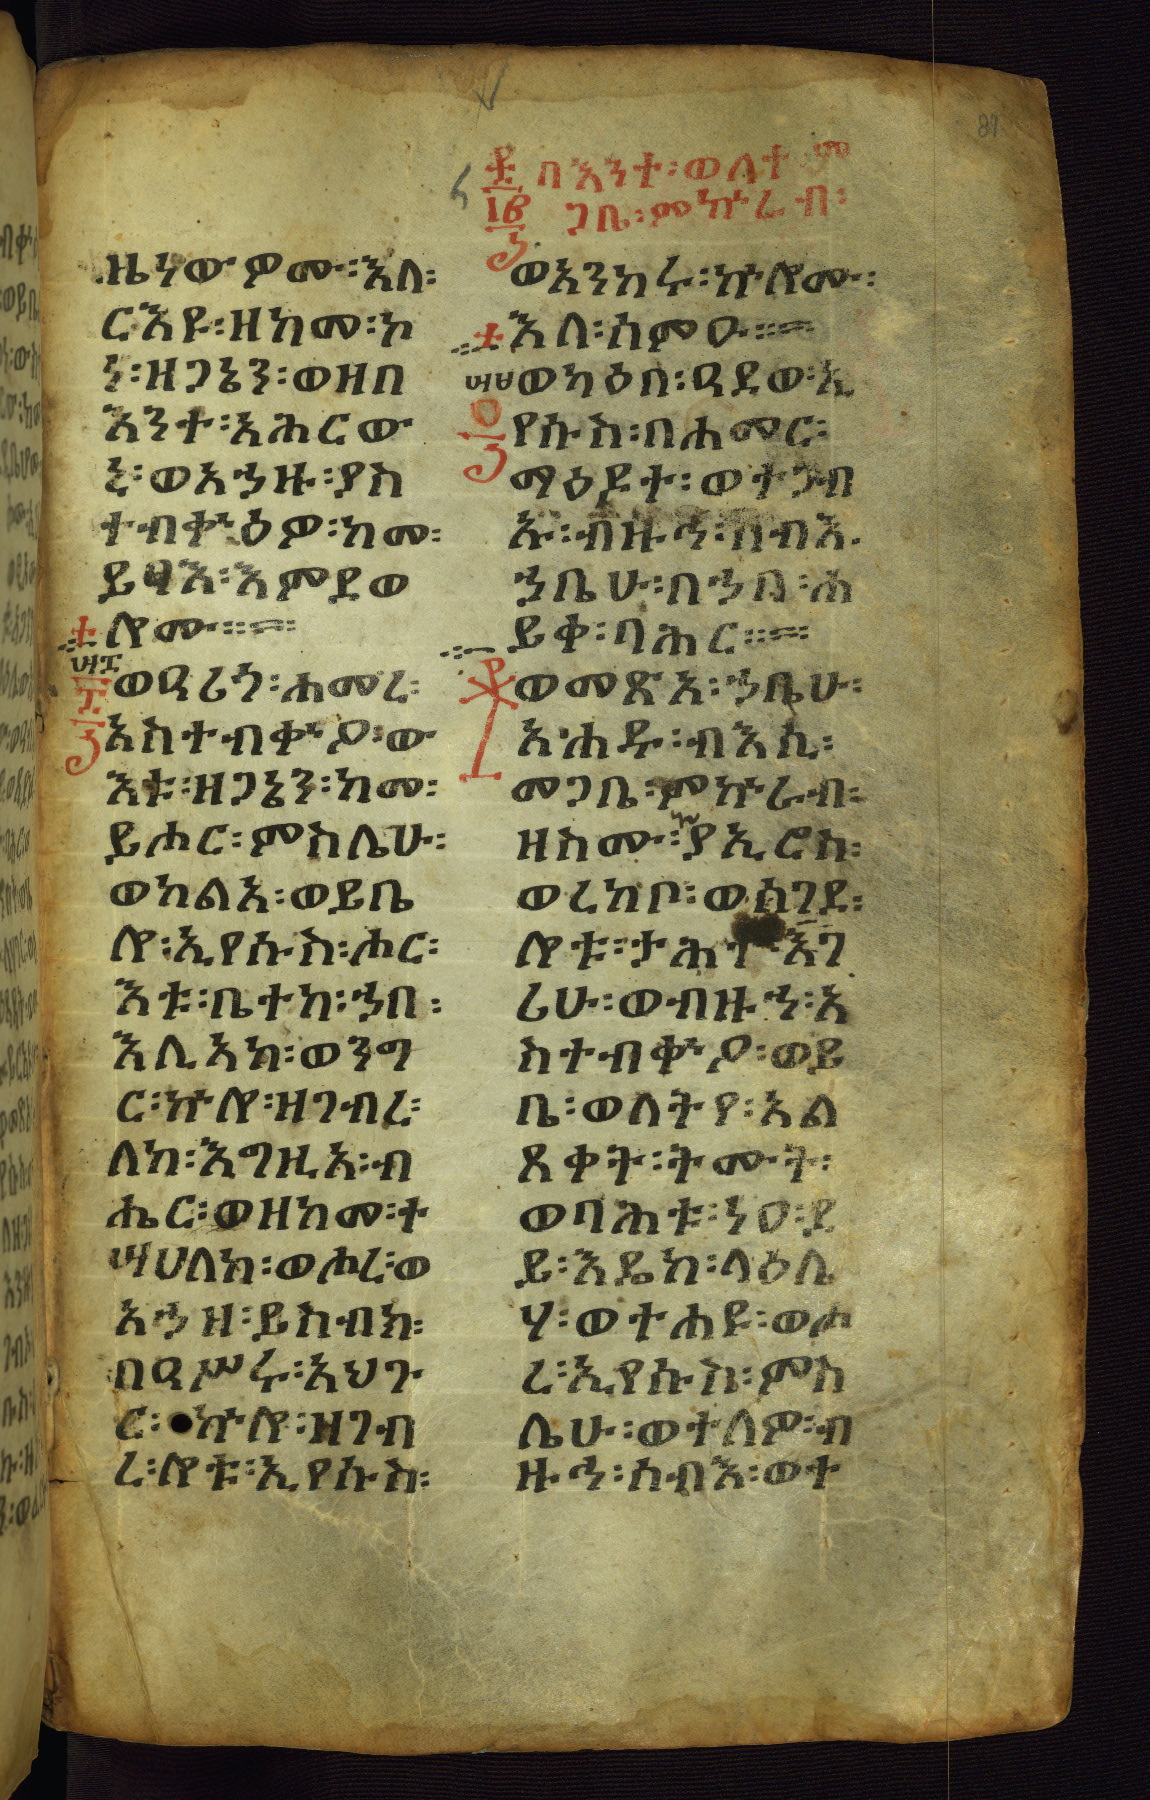 በእንተ፡ወለተ፡ም
ጋቤ፡ምኵራብ፡
ዜነውዎሙ፡እለ፡
ርእዩ፡ዘከመ፡ኮ
ነ፡ዘጋኔን፡ወዘበ
እንተ፡አሕርው
ኒ፡ወአኀዙ፡ያስ
ተብቍዕዎ፡ከመ፡
ይፃእ፡እምደወ
ሎሙ፡፡
ወዓሪጎ፡ሐመረ፡
አስተብቍዖ፡ው
እቱ፡ዘጋኔን፡ከመ፡
ይሖር፡ምስሌሁ፡
ወከልአ፡ወይቤ
ሎ፡ኢየሱስ፡ሖር፡
እቱ፡ቤተከ፡ኀበ፡
እሊአከ፡ወንግ
ር፡ኵሎ፡ዘገብረ፡
ለከ፡እግዚአ፡ብ
ሔር፡ወዘከመ፡ተ
ሣሀለከ፡ወሖረ፡ወ
አኀዘ፡ይስብክ፡
በዓሥሩ፡አህጉ
ር፡ኵሎ፡ዘገብ
ረ፡ሎቱ፡ኢየሱስ፡
ወአንከሩ፡ኵሎሙ፡
እለ፡ሰምዑ፡፡
ወካዕበ፡ዓደወ፡ኢ
የሱስ፡በሐመር፡
ማዕዶተ፡ወተጋብ
ኡ፡ብዙኅ፡ሰብእ
ኀቤሁ፡በኀበ፡ሐ
ይቀ፡ባሕር፡፡
ወመጽአ፡ኀቤሁ፡
አሐዱ፡ብእሲ፡
መጋቤ፡ምኵራብ፡
ዘስሙ፡ኢያኢሮስ፡
ወረከቦ፡ወሰገደ፡
ሎቱ፡ታሕተ፡እገ
ሪሁ፡ወብዙኅ፡አ
ስተብቍዖ፡ወይ
ቤ፡ወለትየ፡አል
ጸቀት፡ትሙት፡
ወባሕቱ፡ነዐ፡ደ
ይ፡እዴከ፡ላዕሌ
ሃ፡ወተሐዩ፡ወሖ
ረ፡ኢየሱስ፡ምስ
ሌሁ፡ወተለዎ፡ብ
ዙኅ፡ሰብእ፡ወተ